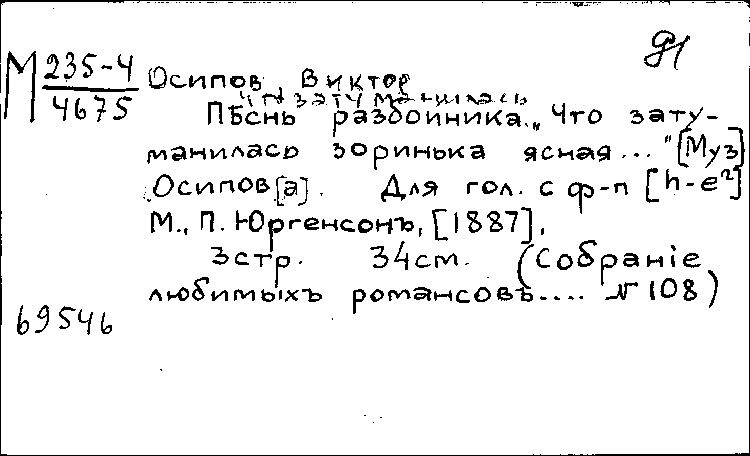 Я1
М 235-4
4675
Осипов Виктор
Что затуманилась
Пѣснь разбойника. „Что зату-
манилась зоринька ясная..." [Муз]
Осипов[а]. Для гол. с ф-п [h-e²]
М., П. Юргенсонъ, [1887],
3стр. 34см. (Собранiе
любимыхъ романсовъ.... №108)
69546